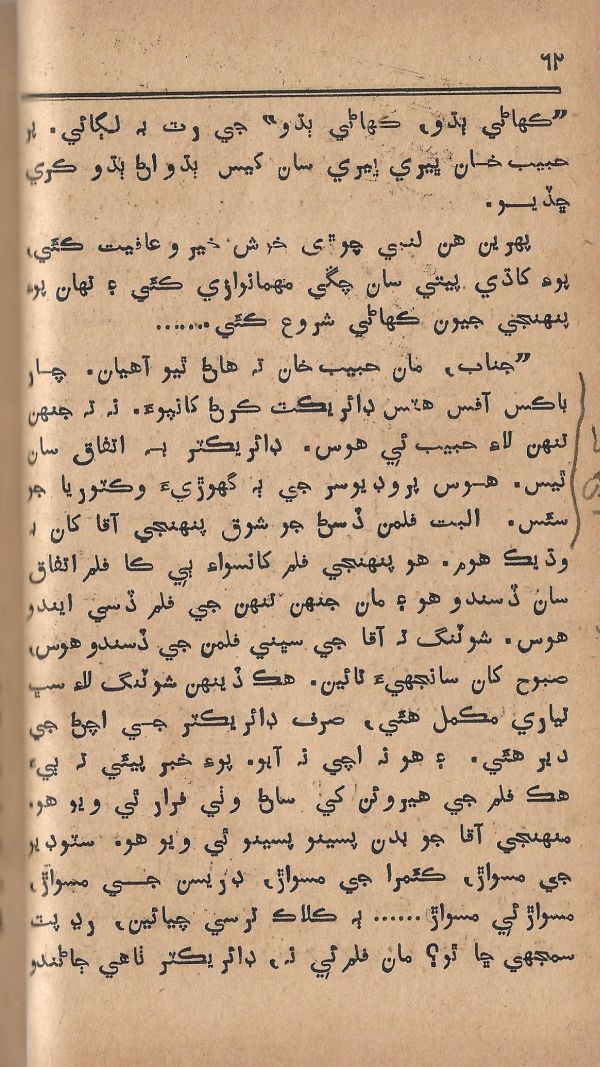 ٦٢
”ڪهاڻي ٻڌو، ڪهاڻي ٻڌو“ جي رٽ به لڳائي. پر
حبيب خان ڀيري ڀيري سان کيس ٻڌو اڻ ٻڌو ڪري
ڇڏيو.
پهرين هن لنبي چوڙي خوش خير و عافيت ڪئي،
پوءِ کاڌي پيتي سان چڱي مهمانوازي ڪئي ۽ تهان پوءِ
پنهنجي جيون ڪهاڻي شروع ڪئي.......
”جناب، مان حبيب خان ته هاڻ ٿيو آهيان. چار
باڪس آفس هٽس ڊائريڪٽ ڪرڻ کانپوءِ. نه ته جنهن
تنهن لاءِ حبيب ئي هوس. ڊائريڪٽر به اتفاق سان
ٿيس. هوس پروڊيوسر جي ٻه گهوڙيءَ وڪٽوريا جو
سئس. البت فلمن ڏسڻ جو شوق پنهنجي آقا کان به
وڌيڪ هوم. هو پنهنجي فلم کانسواءِ ٻي ڪا فلم اتفاق
سان ڏسندو هو ۽ مان جنهن تنهن جي فلم ڏسي ايندو
هوس. شوٽنگ ته آقا جي سڀني فلمن جي ڏسندو هوس،
صبوح کان سانجهيءَ تائين. هڪ ڏينهن شوٽنگ لاءِ سڀ
تياري مڪمل هئي، صرف ڊائريڪٽر جي اچڻ جي
دير هئي. ۽ هو نه اچي نه آيو. پوءِ خبر پيئي ته ٻيءَ
هڪ فلم جي هيروئن کي ساڻ وٺي فرار ٿي ويو هو.
منهنجي آقا جو بدن پسينو پسينو ٿي ويو هو. سٽوڊيو
جي مسواڙ، ڪئمرا جي مسواڙ، ڊريسن جي مسواڙ،
مسواڙ ئي مسواڙ...... ٻه ڪلاڪ ترسي چيائين، رڍ پٽ
سمجهي ڇا ٿو؟ مان فلم ئي نه، ڊائريڪٽر ٺاهي ڄاڻندو